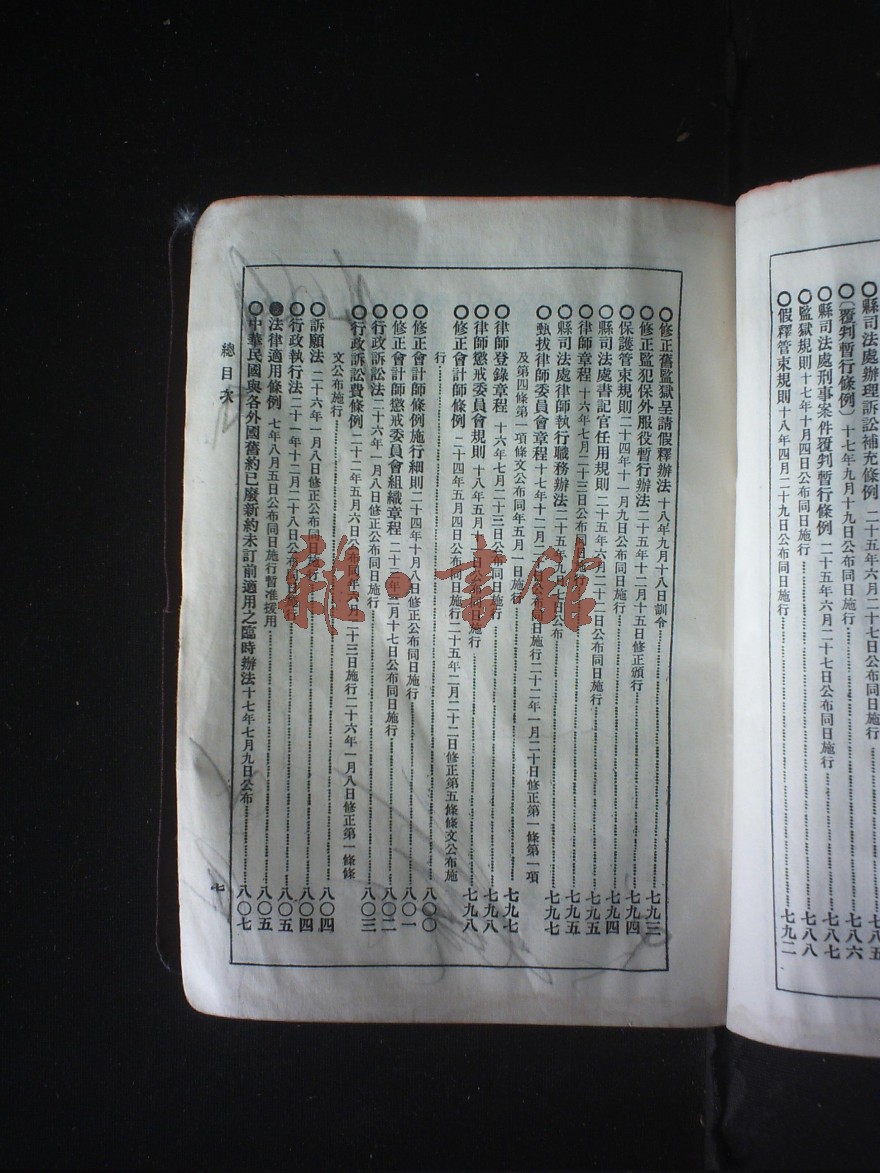 縣司法處辦理訴訟補充條例 二十五年六月二十七日公布同日施行……七八五
○〔覆判暫行條例〕十七年九月十九日公布同日施行……七八六
○縣司法處刑事案件覆判暫行條例 二十五年六月二十七日公布同日施行……七八七
○監獄規則 十七年十月四日公布同日施行……七八八
○假釋管束規則 十八年四月二十九日公布同日施行……七九二
○修正舊監獄呈請假釋辦法 十八年九月十八日訓令……七九三
○修正監犯保外服役暫行辦法 二十五年十二月十五日修正頒行……七九四
○保護管束規則 二十四年十一月九日公布同日施行……七九四
○縣司法處書記官任用規則 二十五年六月二十日公布同日施行……七九五
○律師章程 十六年七月二十三日公布同日施行……七九五
○縣司法處律師執行職務辦法 二十五年 日公布……七九七
○甄拔律師委員會章程 十七年十二月 日公布同日施行二十二年一月二十日修正第一條第一項
及第四條第一項條文公布同年五月一日施行……七九七
○律師登錄章程 十六年七月二十三日公布同日施行……七九八
○律師懲戒委員會規則 十八年五月 日公布同日施行……七九八
○修正會計師條例 二十四年五月四日公布同日施行二十五年二月二十二日修正第五條條文公布施
行……八〇〇
○修正會計師條例施行細則 二十四年十月八日修正公布同日施行……八〇一
○修正會計師懲戒委員會組織章程 二十 年 月十七日公布同日施行……八〇二
○行政訴訟法 二十六年一月八日修正公布同日施行……八〇三
○行政訴訟費條例 二十二年五月六日公布同年六月二十三日施行二十六年一月八日修正第一條條
文公布施行……八〇四
○訴願法 二十六年一月八日修正公布同日施行……八〇四
○行政執行法 二十一年十二月二十八日公布同日施行……八〇五
法律適用條例 七年八月五日公布同日施行暫准援用……八〇五
○中華民國與各外國舊約已廢新約未訂前適用之臨時辦法 十七年七月九日公布……八〇七
總目次
七
雜·書館